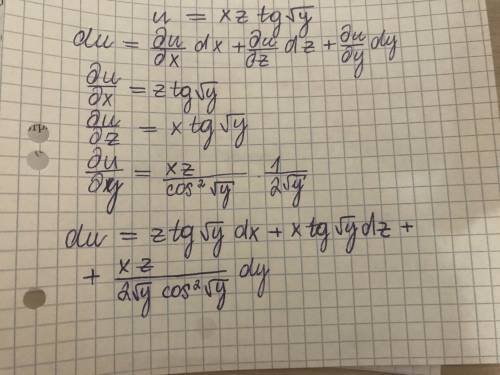 u = xz tg√y
du = ∂u/∂x dx + ∂u/∂z dz + ∂u/∂y dy
∂u/∂x = z tg√y
∂u/∂z = x tg√y
∂u/∂y = xz/cos²√y · 1/2√y
du = z tg√y dx + x tg√y dz +
+ xz/2√y cos²√y dy